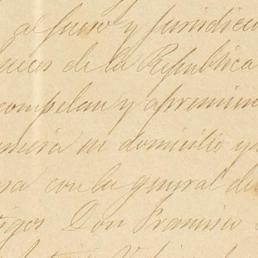 al fuero y jurisdicci
ueces de la Republica
compelan y apremien
su domicilio y
sa con la general de
tigos Don Francisco